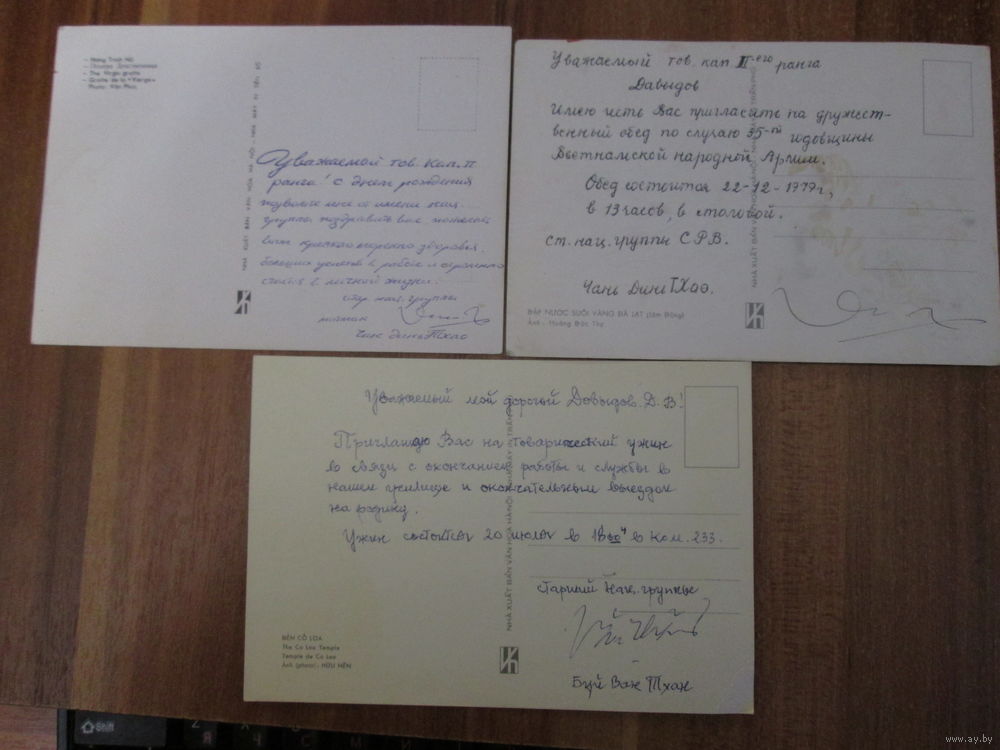 – Hang Trinh Nữ
– The Virgo grotto
– Grotte de la «Vierge»
Уважаемой тов. Кап. II
ранга! С днем рождения
позвольте мне от имени нац.
группы поздравить вас пожелать
вам крепкого морского здоровья.
больших успехов в работе и огромного
счастья в личной жизни.
стар. нац. группы
Чан динь Тхао
Уважаемый тов. кап II-его ранга
Давыдов
Имею честь Вас пригласить на дружест-
венный обед по случаю 35-й годовщины
Вьетнамской народной Армии.
Обед состоится 22-12-1979г,
в 13 часов, в столовой.
ст. нац. группы С Р В.
Чань Динь Тхао.
ĐẬP NƯỚC SUỐI VÀNG ĐÀ LẠT (Lâm Đồng)
Ảnh: Hoàng Đức Thọ
Уважаемый мой дорогой Довыдов. Д. В!
Приглашаю Вас на товарический ужин
в связи с окончанием работы и службы в
нашем училище и окончательным выездом
на родину.
Ужин состоится 20 июля в 18 00 ч в ком. 233.
старший нац. группы
Буй Ван Тхан
ĐỀN CỔ LOA
The Co Loa Temple
Temple de Co Loa
Ảnh (photo): HỮU NỀN
Shift
www.ay.by